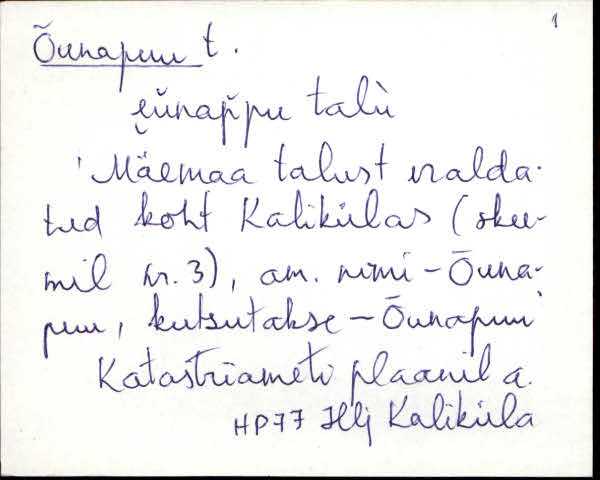 1
Õunapuu t.
e̮ŭnap̆pu talù
'Mäemaa talust eralda-
tud koht Kalikülas (skee-
mil nr. 3), am. nimi – Õuna-
puu, kutsutakse – Õunapuu'
Katastriameti plaanil a.
HP77 Hlj Kaliküla